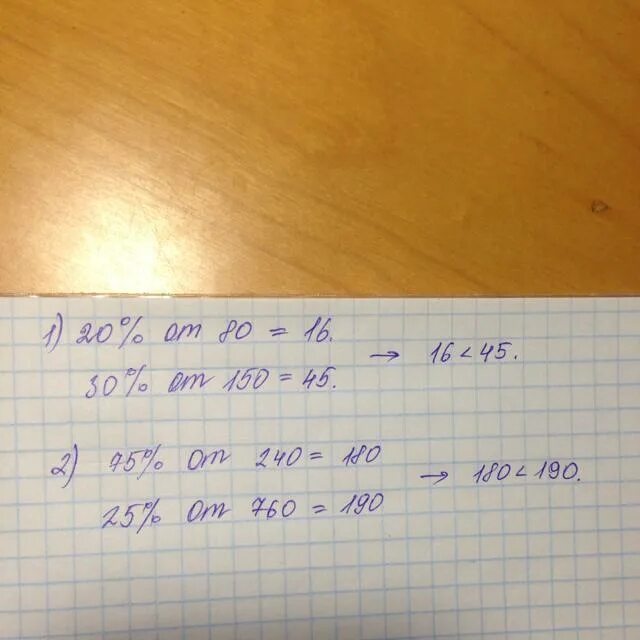 1) 20% от 80 = 16.
30% от 150 = 45.
→ 16 < 45.
2) 75% от 240 = 180
25% от 760 = 190
→ 180 < 190.